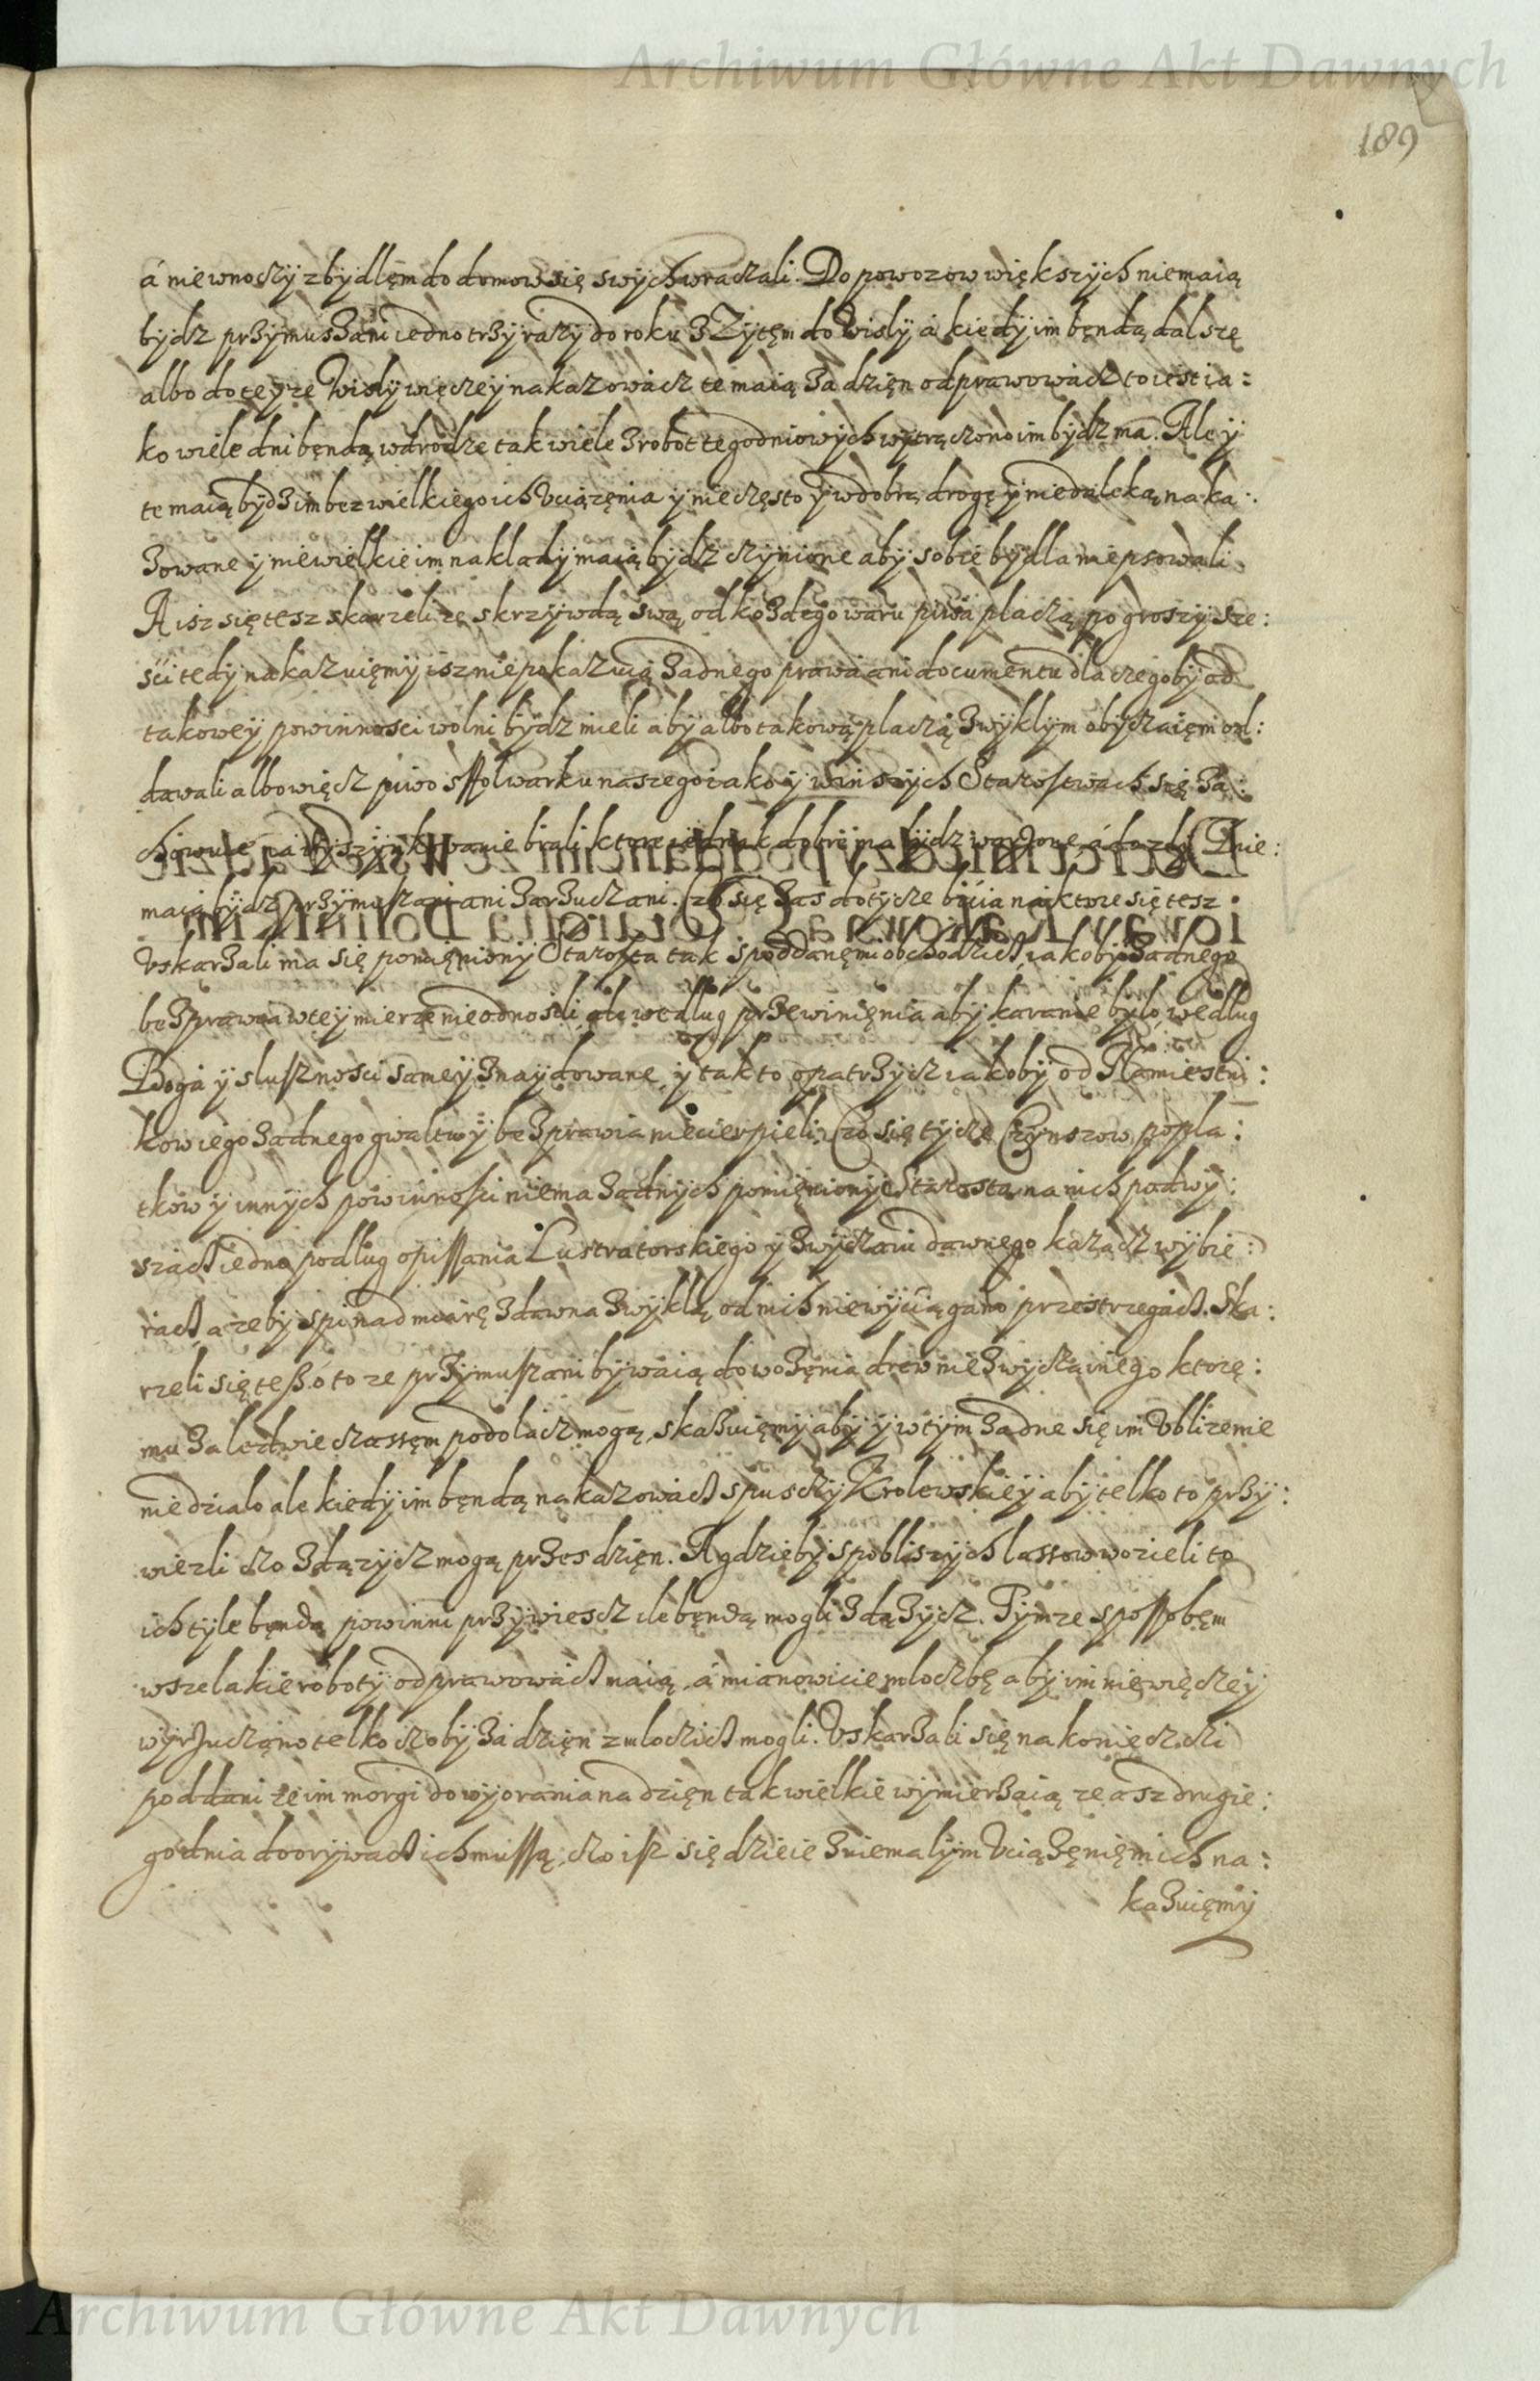 Archiwum Główne Akt Dawnych
189
á niewnoczÿ zbydlęm do domow się swÿch wraczali. Do powozow większych niemaią
bÿdz przÿmuszani iedno trzÿ razÿ do roku z Zÿtęm do Wislÿ á kiedÿ im będą dalszę
albo do teÿze Wislÿ więczeÿ nakazowacz te maią za dzięn odprawowacz to iest ia:
ko wiele dni bęndą w drodze tak wiele z robot tegodniowÿch wÿtrączono im bÿdz ma. Ale ÿ
te maią bÿdz im bez wielkiego ich Vciązęnia ÿ nieczęsto ÿ w dobrą drogę ÿ niedaleką naka:
zowane ÿ niewielkie im nakladÿ maią bÿdz czÿnione abÿ sobie bÿdla niepsowali
A isz się tesz skarzeli ze skrzÿwdą swą od kozdego waru piwa placzą po groszÿ sze:
sci tedÿ nakazuięmÿ isz niepokazuią zadnego prawa ani documentu dla czegobÿ od
takoweÿ powinnosci wolni bÿdz mieli abÿ albo takową placzą zwÿklÿm obÿczaięm od:
dawali albo więcz piwo sffolwarku naszego iako ÿ w inszÿch Starostwach się za:
chowuie na wÿszÿnkowanie brali ktore iednak dobre ma bÿdz warzone, á do zlego nie:
maią bÿdz przÿmuszani ani zarzuczani. Czo się zas dotÿcze bicia na ktore się tesz
Vskarzali ma się pomięnionÿ Starosta tak spoddanęmi obchodzicz, iakobÿ zadnego
bezprawia w teÿ mierze nieodnosili ale według przewinięnia abÿ karanie bÿlo według
Boga ÿ slusznosci sameÿ znaÿdowane, ÿ tak to opatrzÿcz iakobÿ od Namiestni:
kow iego zadnego gwaltu ÿ bezprawia niecierpieli. Czo się tÿcze Czÿnszow, popla:
tkow ÿ innÿch powinnosci niema zadnÿch pomięnionÿ Starosta na nich podwÿ:
szacz iedno podlug opissania Lustratorskiego ÿ zwÿczaiu dawnego kazacz wÿbie:
racz, azebÿ spi nad miarę zdawna zwÿklą od nich niewÿciągano przestrzegacz. Ska:
rzeli się tesz o to ze przÿmuszani bÿwaią do wozęnia drew niezwÿczainego ktorę:
mu zaledwie czassęm podolacz mogą, skazuięmÿ abÿ ÿ w tÿm zadne się im Vblizenie
niedzialo ale kiedÿ im bęndą nakazowacz spusczÿ Krolewskieÿ abÿ telko to przÿ:
wiezli czo zdązÿcz mogą przes dzięn. A gdziebÿ spobliszÿch lassow wozieli to
ich tÿle bęndą powinni przÿwiescz ile bęndą mogli zdązÿcz. Tÿmze spossobęm
wszelakie robotÿ odprawowacz maią, á mianowicie mloczbę abÿ im niewięczeÿ
wÿrzuczano telko czobÿ za dzięn zmloczicz mogli. Vskarzali się na koniecz czi
poddani ze im morgi do wÿorania na dzięn tak wielkie wÿmierzaią ze asz drugie:
go dnia doorÿwacz ich muszą, czo isz się dzieie z niemalÿm Vciązęnięm ich na:
kazuięmÿ
Archiwum Główne Akt Dawnych